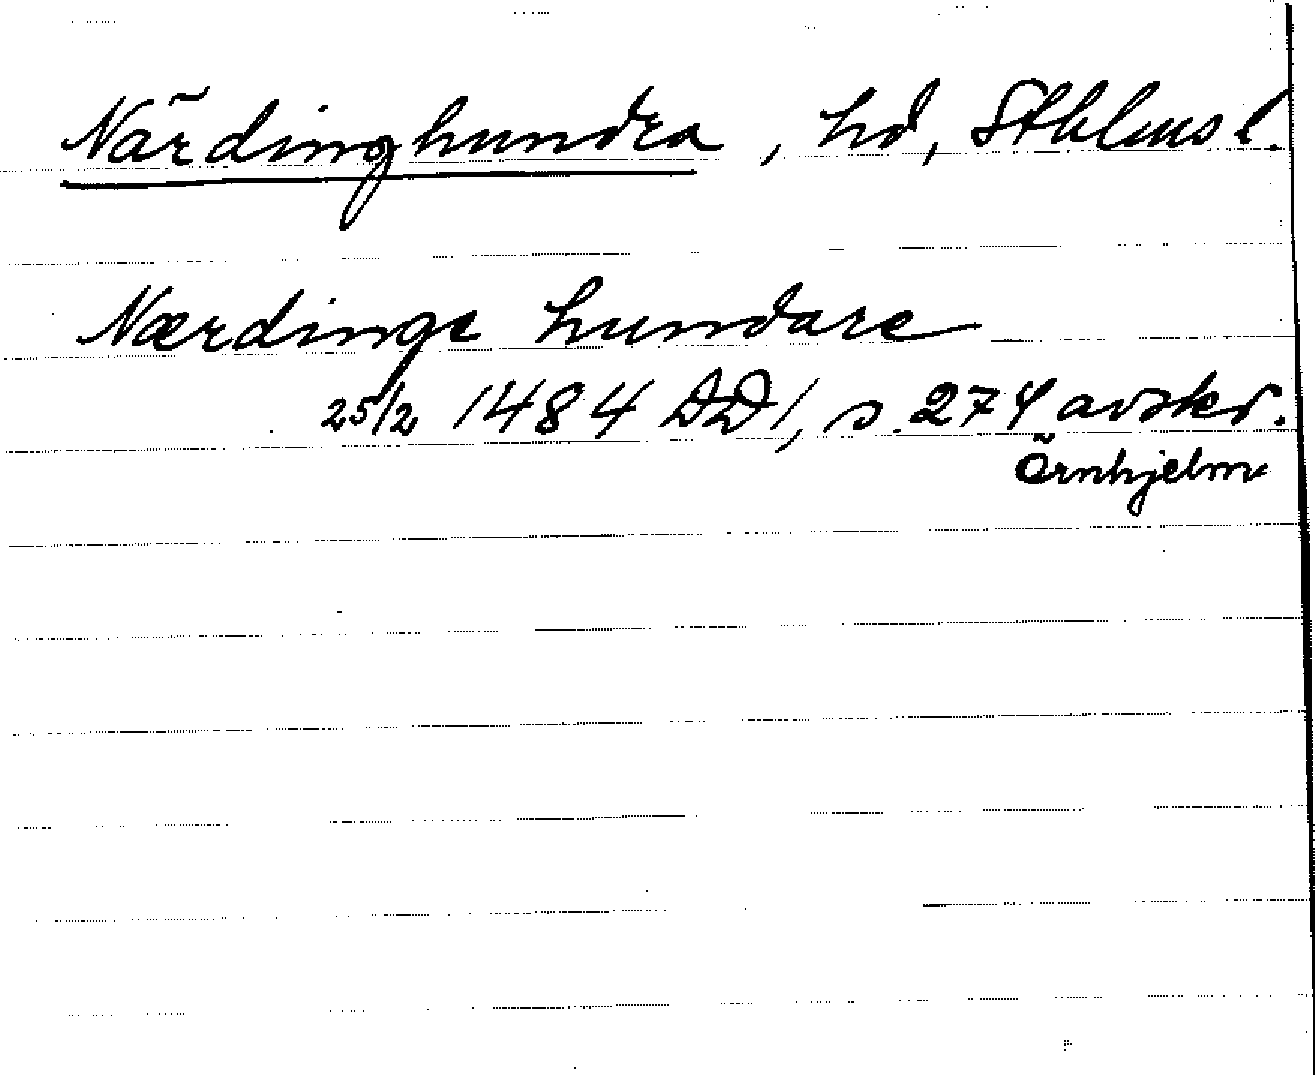 Närdinghundra, hd, Sthlms l.
Nærdinge hundare
25/2 1484 DD 1, s. 274 avskr.
Örnhjelm